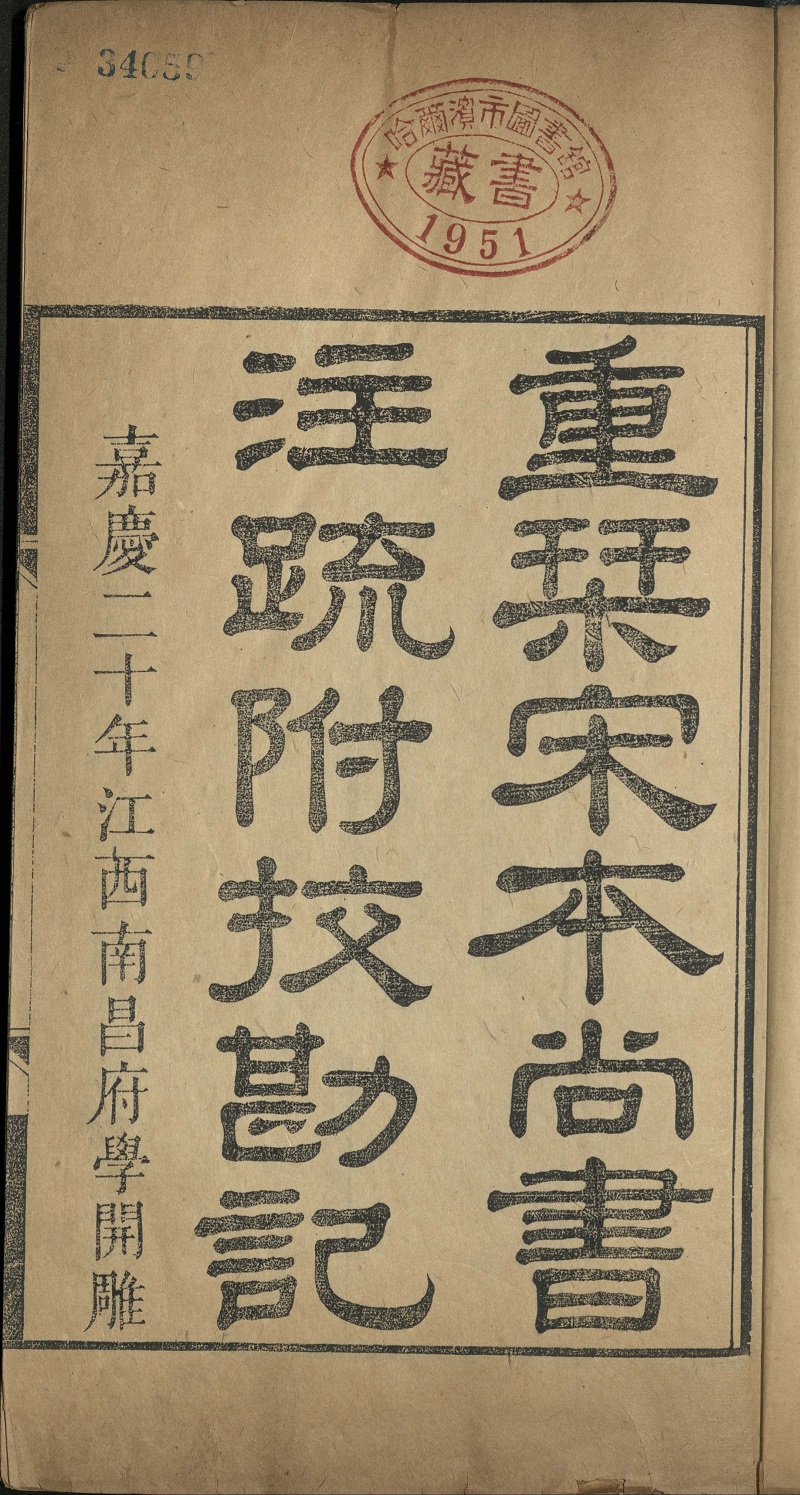 34059
哈爾濱市圖書館
藏書
1951
重栞宋本尚書
注疏附挍勘記
嘉慶二十年江西南昌府學開雕